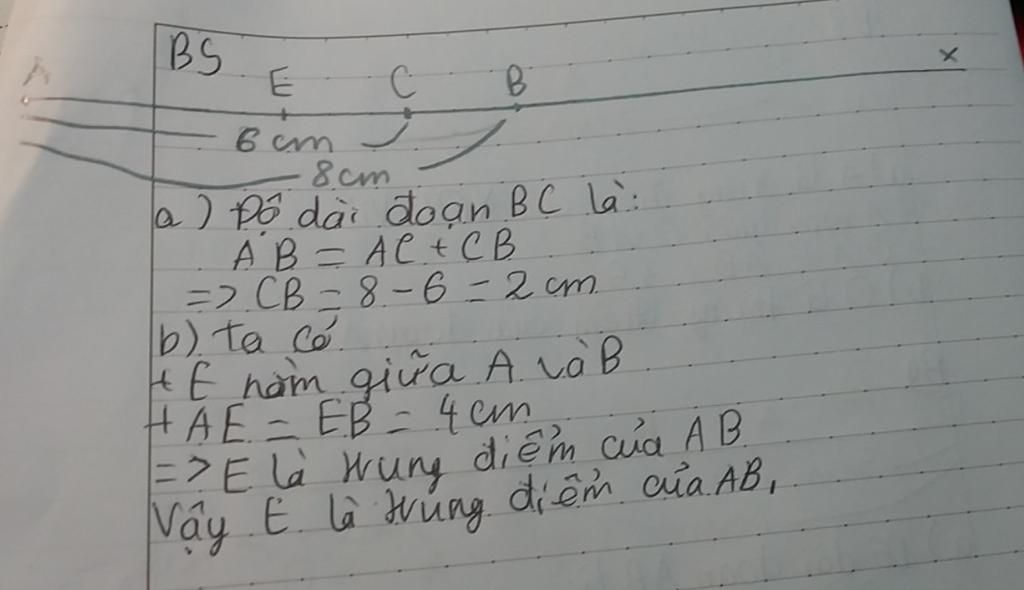 BS
A E C B x
6 cm
8 cm
a) Độ dài đoạn BC là:
AB = AC + CB
=> CB = 8 - 6 = 2 cm
b) ta có
+ E nằm giữa A và B
+ AE = EB = 4 cm
=> E là trung điểm của AB
Vậy E là trung điểm của AB,